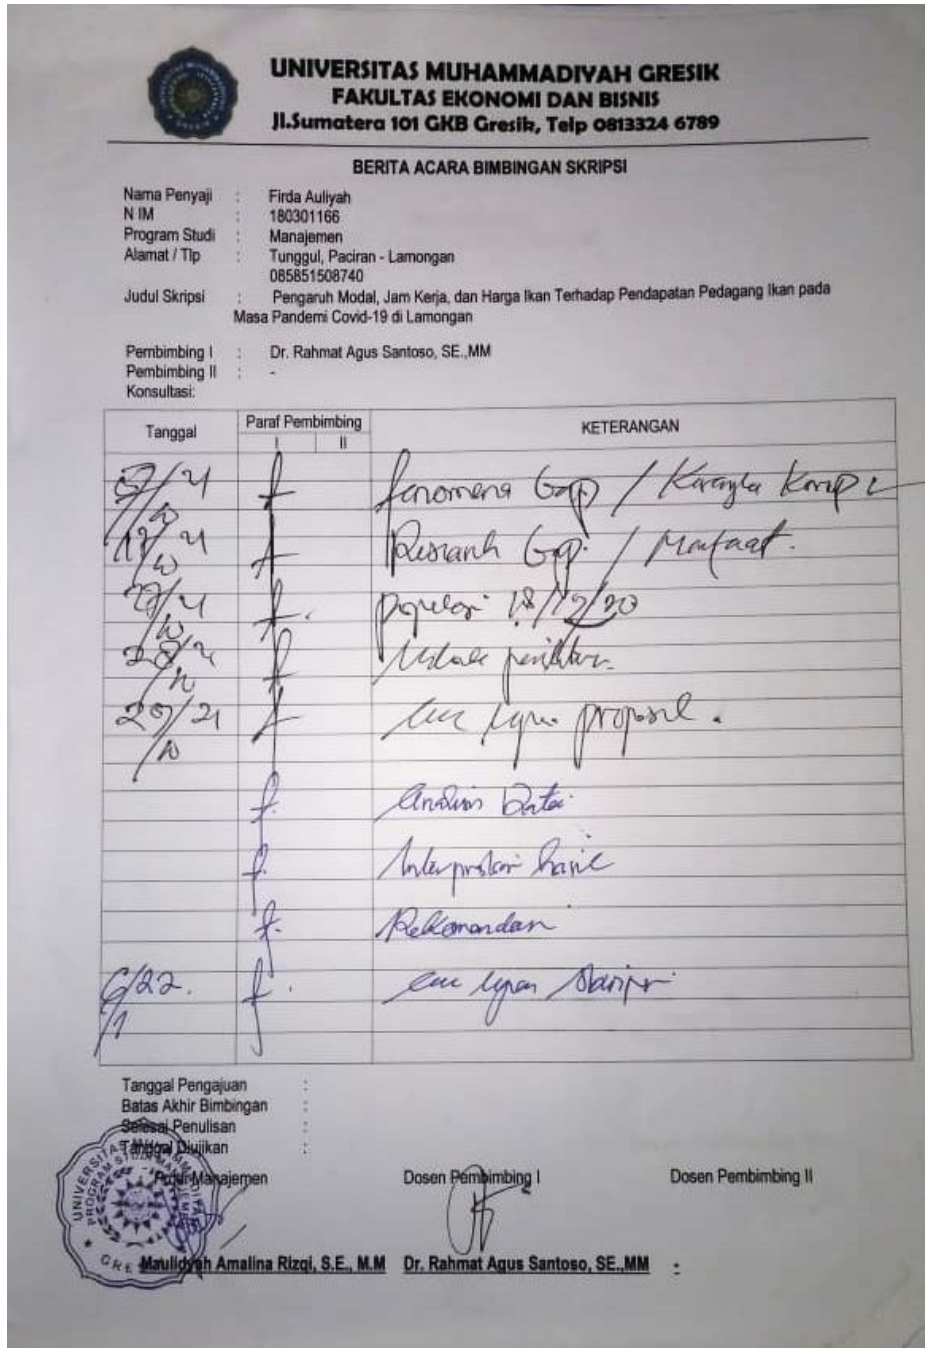 UNIVERSITAS MUHAMMADIYAH GRESIK
FAKULTAS EKONOMI DAN BISNIS
Jl.Sumatera 101 GKB Gresik, Telp 0813324 6789
BERITA ACARA BIMBINGAN SKRIPSI
Nama Penyaji : Firda Auliyah
N IM : 180301166
Program Studi : Manajemen
Alamat / Tlp : Tunggul, Paciran - Lamongan
085851508740
Judul Skripsi : Pengaruh Modal, Jam Kerja, dan Harga Ikan Terhadap Pendapatan Pedagang Ikan pada
Masa Pandemi Covid-19 di Lamongan
Pembimbing I : Dr. Rahmat Agus Santoso, SE.,MM
Pembimbing II : -
Konsultasi:
Tanggal Paraf Pembimbing KETERANGAN
I II
fenomena Gap /
Research Gap. / Manfaat.
populasi 18/19/20
proposal.
Analisis Data
Interpretasi hasil
Rekomendasi
6/22. Skripsi
1
Tanggal Pengajuan :
Batas Akhir Bimbingan :
Selesai Penulisan :
Tanggal Diujikan :
Prodi Manajemen Dosen Pembimbing I Dosen Pembimbing II
Maulidyah Amalina Rizqi, S.E., M.M Dr. Rahmat Agus Santoso, SE.,MM :